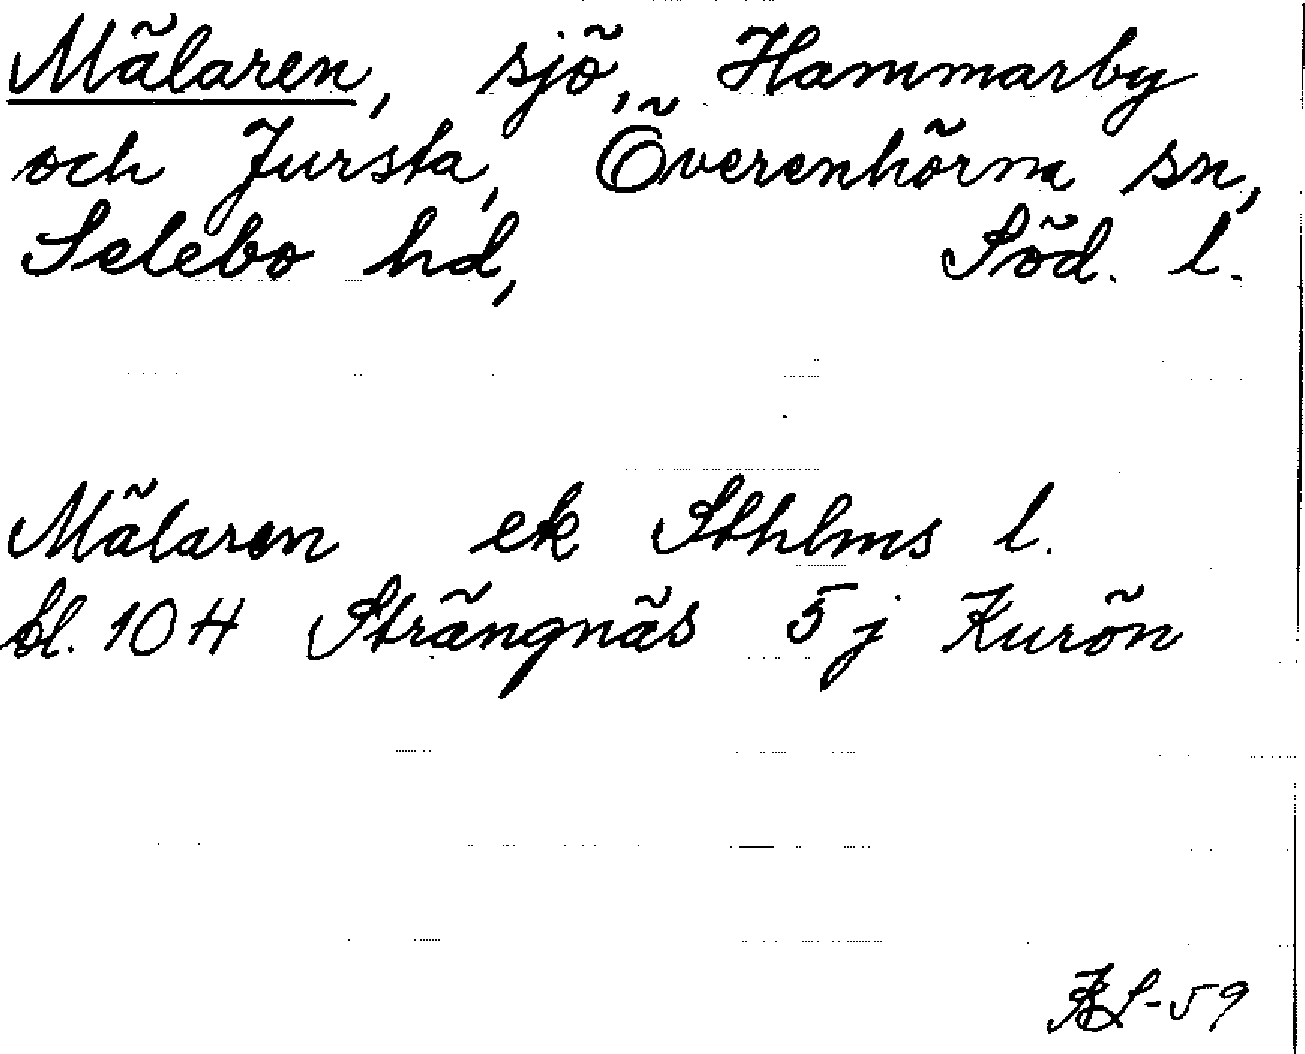 Mälaren, sjö, Hammarby
och Jursta, Överenhörna sn,
Selebo hd, Söd. l.
Mälaren ek Sthlms l.
bl. 10 H Strängnäs 5 j Kurön
-59